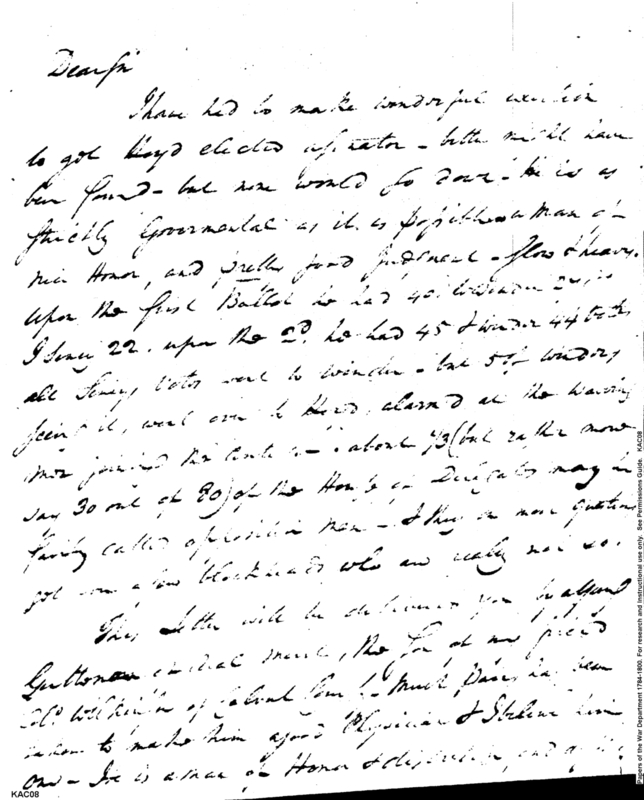 Dear Sir
I have had to make wonderful exertion
to get Lloyd elected a Senator - better might have
been found - but none would go down - he is as
strictly Governmental as it is possible a man of
nice Honor, and pretty good Judgment - Slow & heavy.
upon the first Ballot he had 40. Winder
22. upon the 2d. he had 45 & Winder 44
all votes went to Winder - but 5 of Winders
seeing it, went over to alarmed at the
joined the about 1/3 (but rather more
say 30 out of 80) of the House of Delegates may be
fairly called opposition men - & they on most questions
get over a few blockheads who are really not so.
This Letter will be delivered you by a
Gentleman of merit, the Son of my friend
Colo. Wilkinson of Calvert County Much Pains has been
taken to make him a good Physician & I believe him
one - He is a man of Honor & discretion, and
KAC08
Papers of the War Department 1784-1800. For research and instructional use only. See Permissions Guide. KAC08